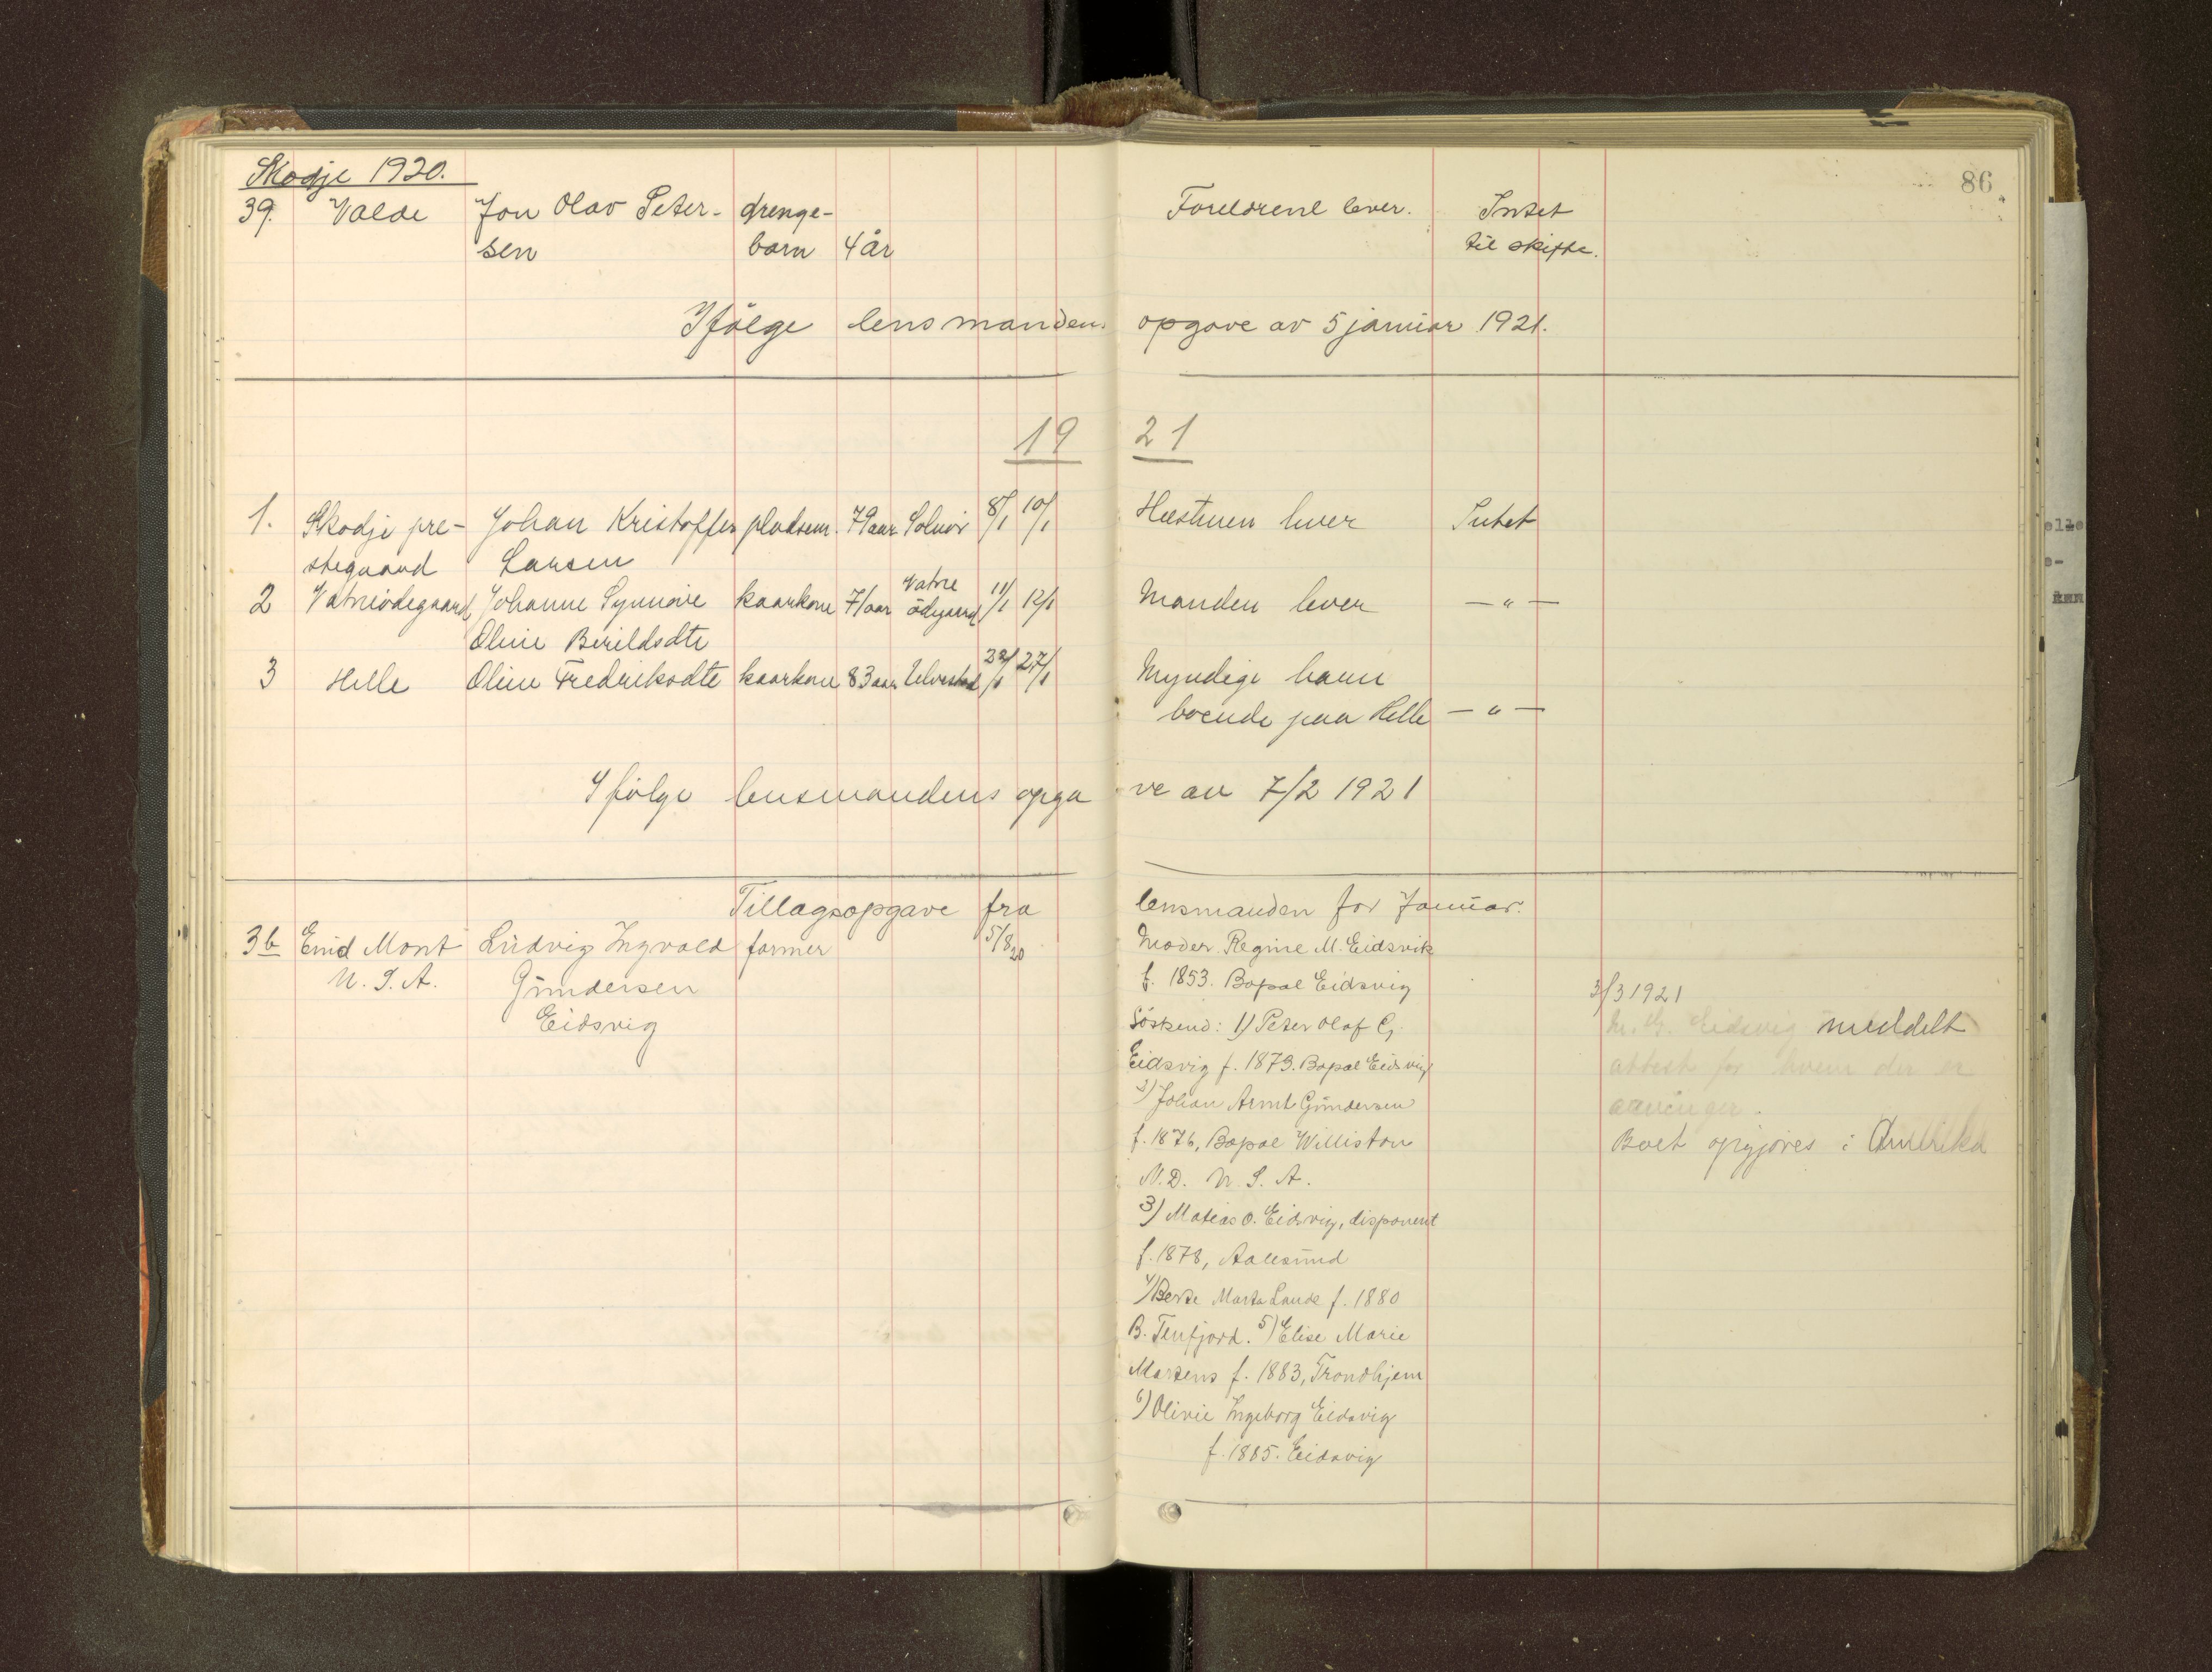 86
Skodje 1920.
39. Valde Jon Olav Peter- drenge- Foreldrene lever. Intet
sen barn 4 år til skifte.
Ifölge lensmandens opgave av 5 januar 1921.
19 21
1. Skodje pre- Johan Kristoffer pladsem. 79 aar Solnör 8/1 10/1 Hustruen lever Intet
stegaard Larsen
2 Vatneödegaard Johanne Synnöve kaarkone 71 aar Vatne ödegaard 11/1 12/1 Manden lever — " —
Oline Berildsdtr
3 Helle Oline Fredriksdtr kaarkone 83 aar 22/1 27/1 Myndige barn
boende paa Helle — " —
Ifölge lensmandens opgave av 7/2 1921
Tillagsopgave fra lensmanden for Januar.
3b Enid Mont Ludvig Ingvald farmer 5/8 20 Moder Regine M. Eidsvik
U.S.A. Gundersen f. 1853. Bopæl Eidsvig
Eidsvig Söskend: 1) Peter Olaf G.
Eidsvig f. 1873. Bopæl Eidsvig
2) Johan Arnt Gundersen
f. 1876, Bopæl Williston
N.D. U.S.A.
3) Mateas O. Eidsvig, disponent
f. 1878, Aalesund
4) Berte Marta Lande f. 1880
B. Tenfjord. 5) Elise Marie
Martens f. 1883, Trondhjem
6) Olivie Ingeborg Eidsvig
f. 1885. Eidsvig
3/3 1921
Eidsvig meddelt
attest for hvem der er
arvinger.
Boet opgjöres i Amerika